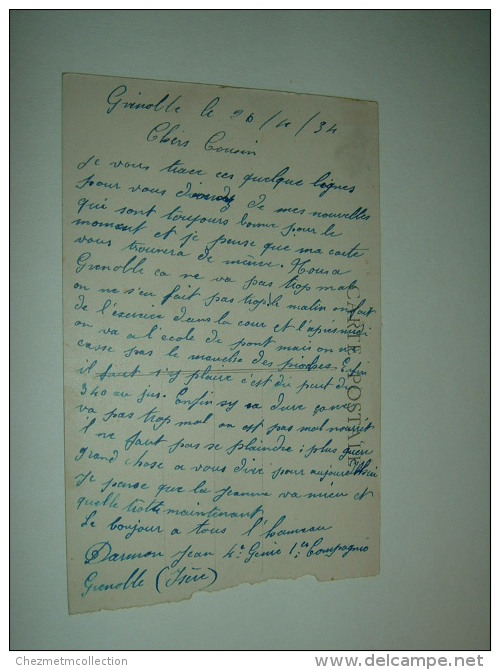 Grenoble le 26/4/34
Chers Cousin
Je vous trace ces quelque lignes
pour vous de mes nouvelles
qui sont toujours bonne pour le
moment et je pense que ma carte
vous trouvera de même. Nous a
Grenoble ca ne va pas trop mal
on ne s'en fait pas trop le matin on fait
de l'exercice dans la cour et l'apres midi
on va a l'école de pont mais on ne
casse pas le manche des pioches. Enfin
il faut s'y plaire c'est du peut du
340 au jus. Enfin si sa dure ça ne
va pas trop mal on est pas mal nourrit
il ne faut pas se plaindre; plus quen
grand chose a vous dire pour aujourd'hui
Je pense que la Jeanne va mieu et
quelle trotte maintenant.
Le bonjour a tous l'hameau
Darmon Jean 4e Génie 1ere Compagnie
Grenoble (Isère)
CARTE POSTALE
Chezmetmcollection